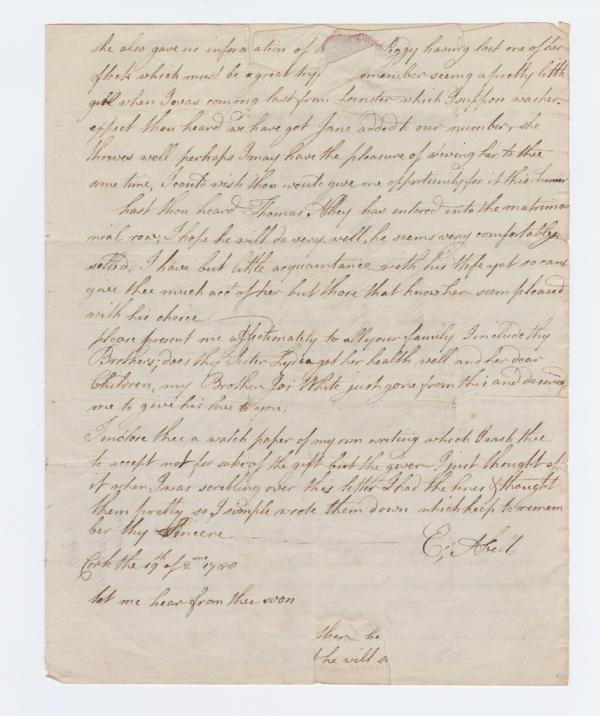 she also gave us information of Peggy having lost one of her
flock which must be a great try, remember seeing a pretty little
girl when I was coming last from Leinster which I suppose was her.
expect thou heard we have got Jane added to our number, she
thrives well perhaps I may have the pleasure of shewing her to thee
some time, I could wish thou would give me opportunity for it this Summer
hast thou heard Thomas Abey has entered into the matrimo
nial row, I hope he will do very well, he seems very comfortably
settled; I have but little acquaintance with his Wife yet so cant
give thee much acct. of her but those that know her seem pleased
with his choice
please present me affectionately to all your family I include thy
Brothers; does thy Sister Lydia get her health well and her dear
Children, my Brother Jos White just gone from this and desired
me to give his love to you;
I inclose thee a watch paper of my own writing which I wish thee
to accept not for sake of the gift but the giver I just thought of
it when I was scrolling over this letter I had the lines & thought
them pretty so I simple wrote them down which keep to remem
ber thy Sincere
E; Abell
Cork the 19th of 2mo 1788
let me hear from thee soon
then he
he will